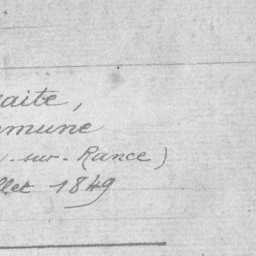 aite,
mune
-sur-Rance)
llet 1849